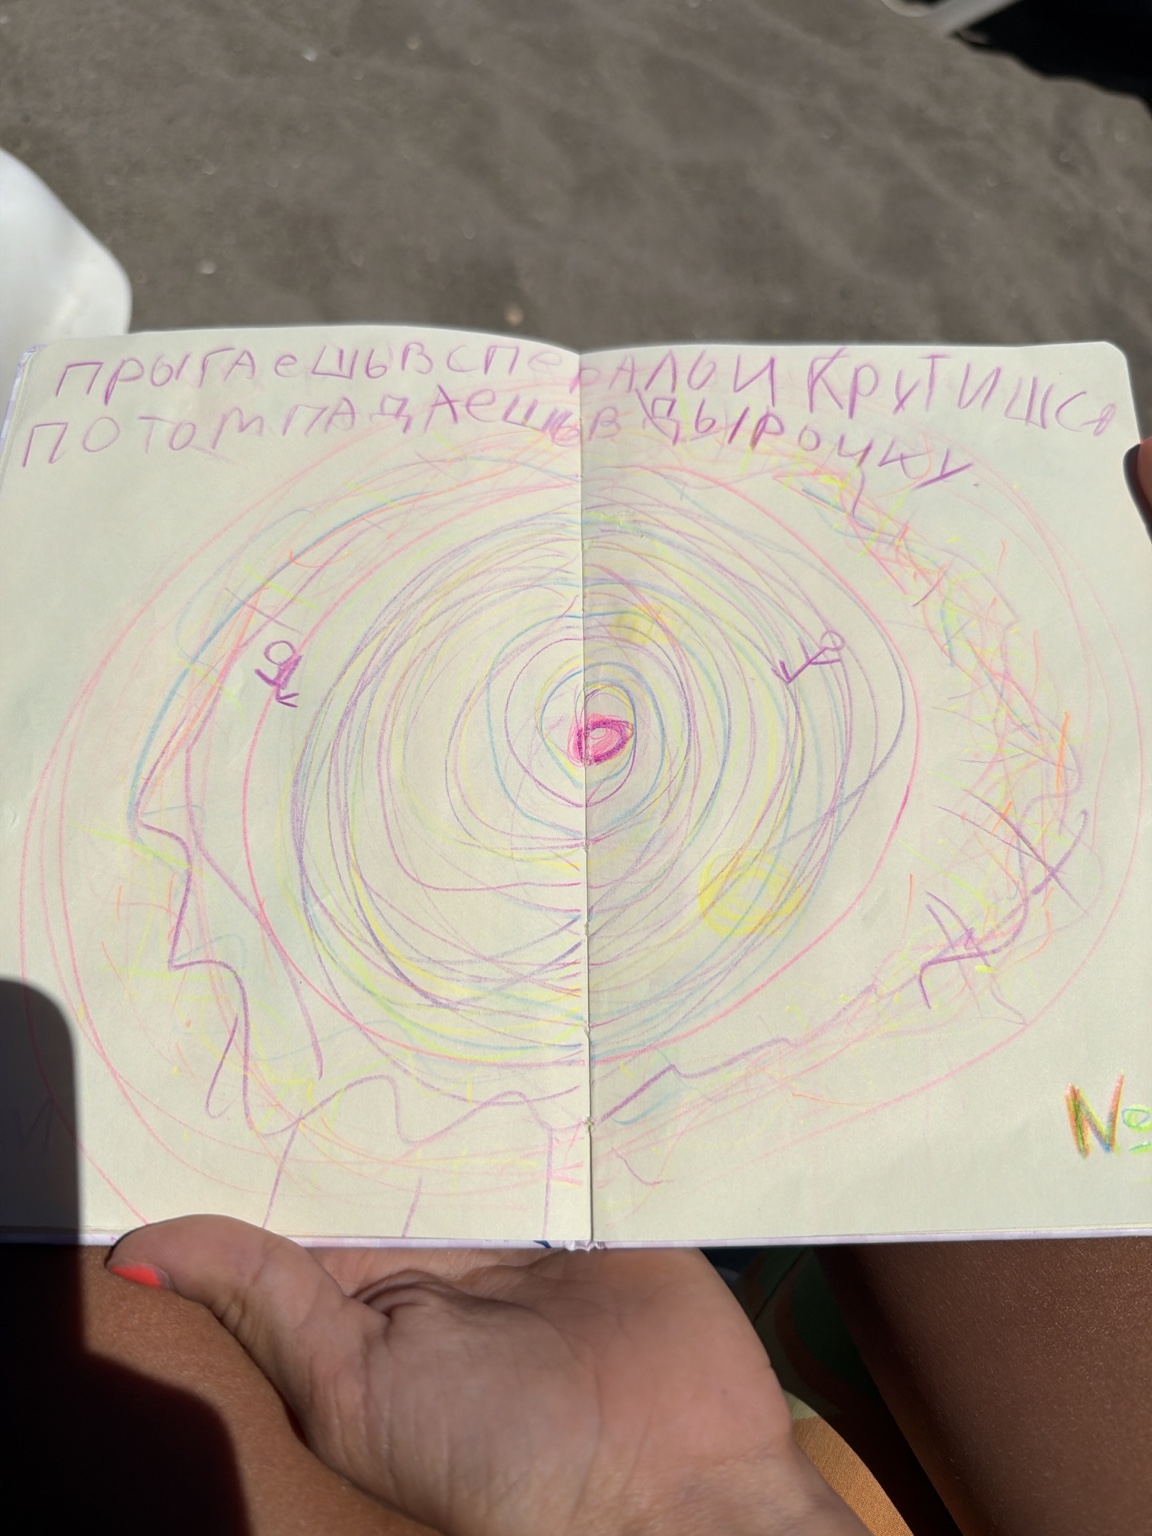 ПРЫГАеШЬВСПеРАЛЬИ КРУТИШСЯ
ПОТОМПАДАеШЬВ ДЫРОЧКУ
№